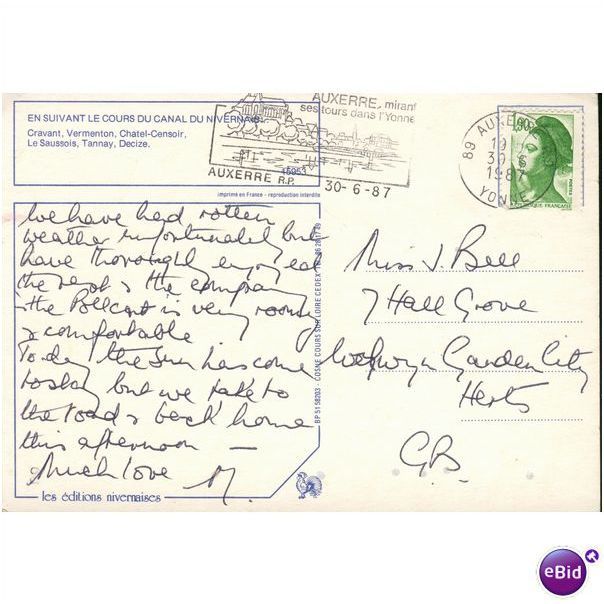 EN SUIVANT LE COURS DU CANAL DU NIVERNAIS
Cravant, Vermenton, Chatel-Censoir,
Le Saussois, Tannay, Decize.
AUXERRE, mirant
ses tours dans l'Yonne
AUXERRE R.P.
30-6-87
89 AUXERRE R.P.
30-6
1987
YONNE
1,90
POSTES
RÉPUBLIQUE FRANÇAISE
imprimé en France - reproduction interdite
We have had rotten
weather unfortunately but
have thoroughly enjoyed
the rest & the company
the is very roomy
& comfortable
Today the sun has come
today but we take to
the road & back home
this afternoon —
Much love M.
Miss J. Bell
7 Hall Grove
Welwyn Garden City
Herts
G.B.
BP 5158203 - COSNE COURS SUR LOIRE CEDEX
les éditions nivernaises
eBid